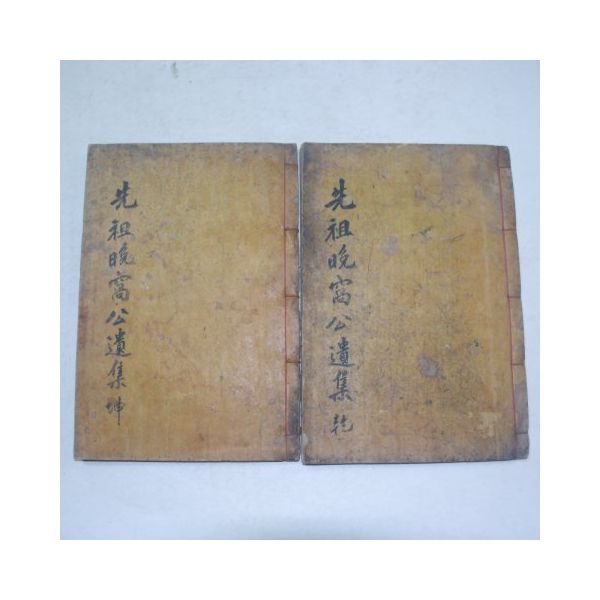 先祖晩窩公遺集 乾
先祖晩窩公遺集 坤